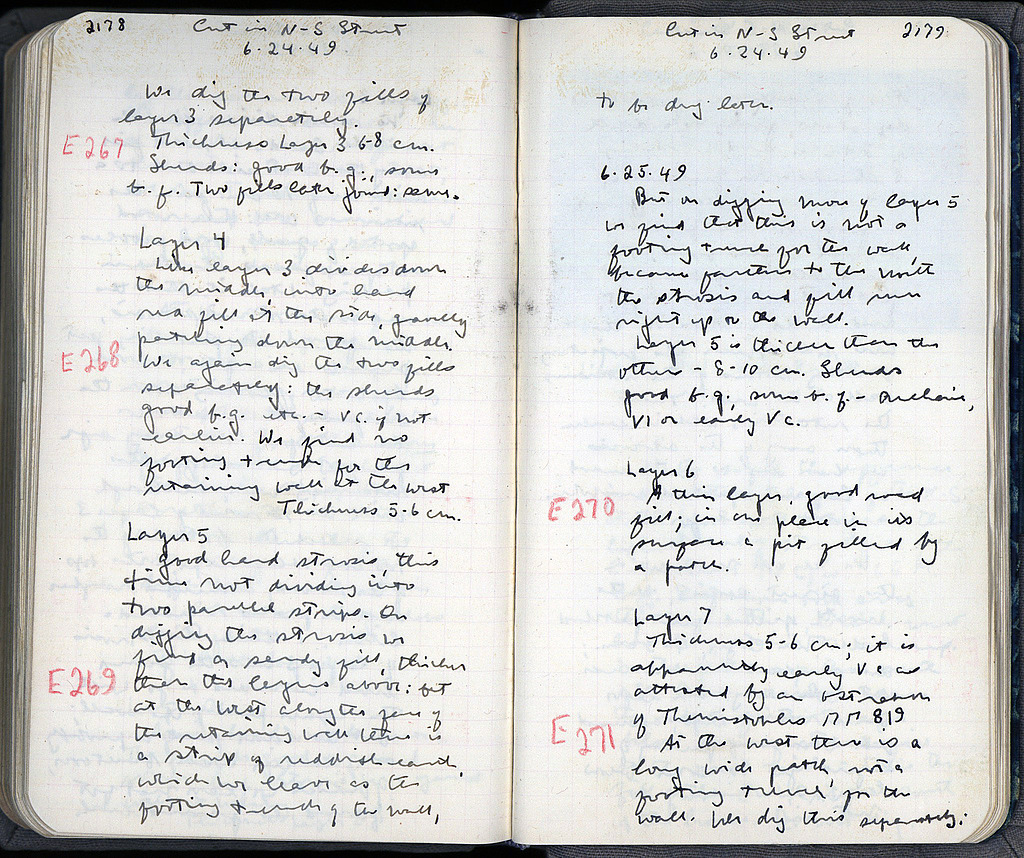 2178
Cut in N-S Street
6.24.49
We dig the two fills of
layer 3 separately.
E267
Thickness Layer 3 6-8 cm.
Sherds: good b.g., some
b.f. Two fills later joined: same.
Layer 4
Like layer 3 divides down
the middle, into hard
red fill at the side, gravelly
patching down the middle.
E268
We again dig the two fills
separately: the sherds
good b.g. etc. - V c. if not
earlier. We find no
footing trench for the
retaining wall at the west
Thickness 5-6 cm.
Layer 5
good hard strosis, this
time not dividing into
two parallel strips. On
digging the strosis we
find a sandy fill, thicker
E269
than the layers above: but
at the west along the face of
the retaining wall there is
a strip of reddish earth,
which we leave as the
footing trench of the wall,
2179
Cut in N-S Street
6.24.49
to be dug later.
6.25.49
But on digging more of layer 5
we find that this is not a
footing trench for the wall,
because farther to the north
the strosis and fill run
right up to the wall.
Layer 5 is thicker than the
others - 8-10 cm. Sherds
good b.g., some b.f. - archaic,
VI or early V c.
Layer 6
E270
A thin layer, good road
fill; in one place in its
surface a pit filled by
a patch.
Layer 7
Thickness 5-6 cm; it is
apparently early V c as
attested by an ostrakon
of Themistokles ΠΠ 819
E271
At the west there is a
long wide patch, not a
footing trench for the
wall. We dig this separately: